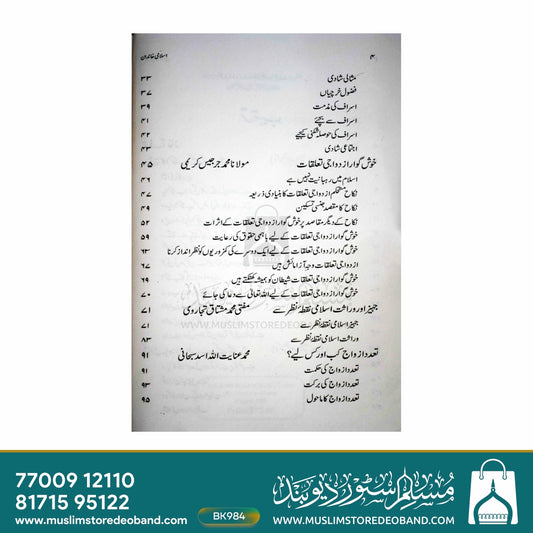 ۴ اسلامی خاندان
مثالی شادی ۳۳
فضول خرچیاں ۳۷
اسراف کی مذمت ۳۹
اسراف سے بچئے ۴۱
اسراف کی حوصلہ شکنی کیجیے ۴۲
اجتماعی شادی ۴۳
خوش گوار ازدواجی تعلقات مولانا محمد جرجیس کریمی ۴۵
اسلام میں رہبانیت نہیں ہے ۴۶
نکاح مستحکم ازدواجی تعلقات کا بنیادی ذریعہ ۴۷
نکاح کا مقصد جنسی تسکین ۴۹
نکاح کے دیگر مقاصد پر خوش گوار ازدواجی تعلقات کے اثرات ۵۲
خوش گوار ازدواجی تعلقات کے لیے باہمی حقوق کی رعایت ۵۹
خوش گوار ازدواجی تعلقات کے لیے ایک دوسرے کی کمزوریوں کو نظر انداز کرنا ۶۳
ازدواجی تعلقات وجہ آزمائش ہیں ۶۷
خوش گوار ازدواجی تعلقات شیطان کو ہمیشہ کھٹکتے ہیں ۶۹
خوش گوار ازدواجی تعلقات کے لیے اللہ تعالیٰ سے دعا کی جائے ۷۰
جہیز اور وراثت اسلامی نقطۂ نظر سے مفتی محمد مشتاق تجاروی ۷۱
WWW.MUSLIMSTOREDEOBAND.COM
جہیز اسلامی نقطۂ نظر سے ۷۱
وراثت اسلامی نقطۂ نظر سے ۸۳
تعدد ازواج کب اور کس لیے؟ محمد عنایت اللہ اسد سبحانی ۹۱
تعدد ازواج کی حکمت ۹۱
تعدد ازواج کی برکت ۹۳
تعدد ازواج کا ماحول ۹۵
77009 12110
81715 95122
www.muslimstoredeoband.com
BK984
مسلم سٹور دیوبند
WWW.MUSLIMSTOREDEOBAND.COM